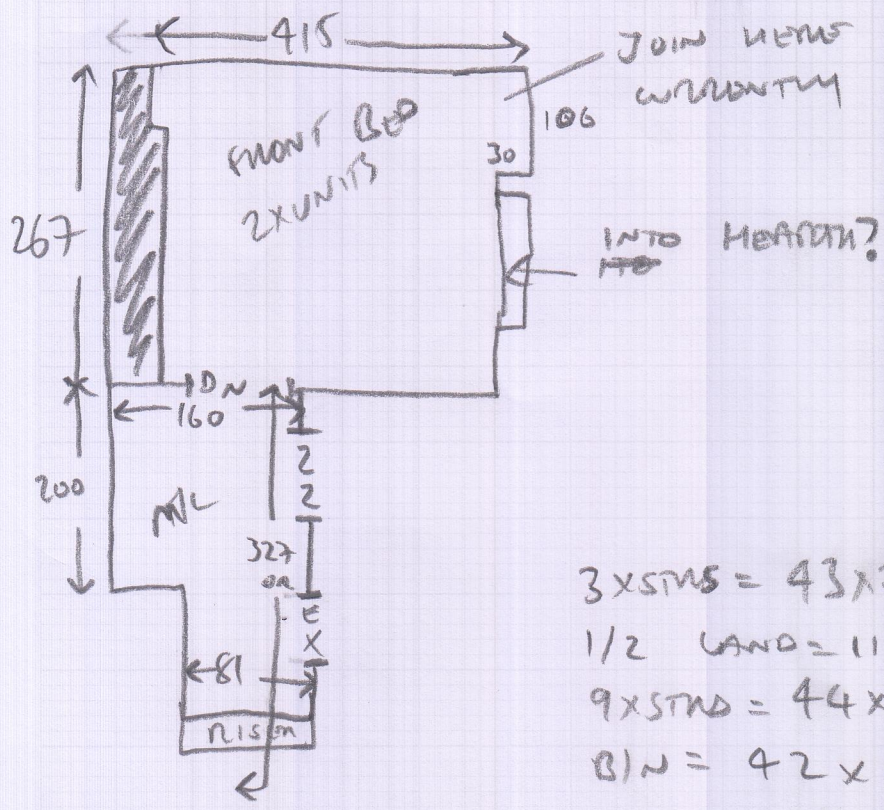 415
JOIN HERE
CURRENTLY
106
FRONT BED
2 X UNITS
30
267
INTO HEARTH?
DN
160
200
Z
Z
M/L
327
OR
E
X
81
RISER
3 X STRS = 43 X
1/2 LAND = 11
9 X STRD = 44 X
BIN = 42 X